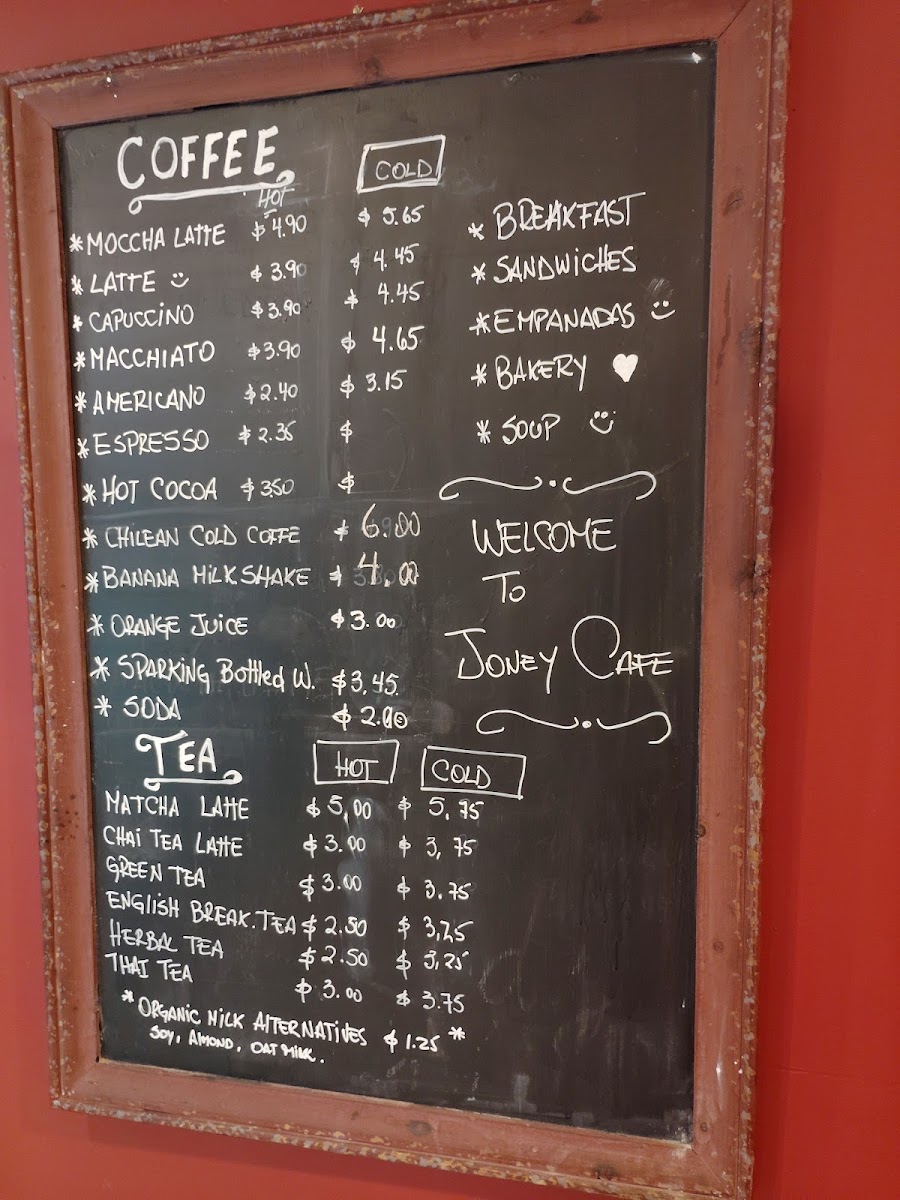 COFFEE
HOT COLD
* MOCCHA LATTE $ 4.90 $ 5.65
* LATTE $ 3.90 $ 4.45
* CAPUCCINO $ 3.90 $ 4.45
* MACCHIATO $ 3.90 $ 4.65
* AMERICANO $ 2.40 $ 3.15
* ESPRESSO $ 2.35 $
* HOT COCOA $ 3.50 $
* CHILEAN COLD COFFE $ 6.00
* BANANA MILKSHAKE $ 4.00
* ORANGE JUICE $ 3.00
* SPARKING Bottled W. $ 3.45
* SODA $ 2.00
TEA HOT COLD
MATCHA LATTE $ 5,00 $ 5,75
CHAI TEA LATTE $ 3.00 $ 3,75
GREEN TEA $ 3.00 $ 3.75
ENGLISH BREAK.TEA $ 2.50 $ 3,25
HERBAL TEA $ 2.50 $ 3,25
THAI TEA $ 3.00 $ 3.75
* ORGANIC MILK ALTERNATIVES $ 1.25 *
SOY, ALMOND, OAT MILK.
* BREAKFAST
* SANDWICHES
* EMPANADAS
* BAKERY
* SOUP
WELCOME
TO
JONEY CAFE